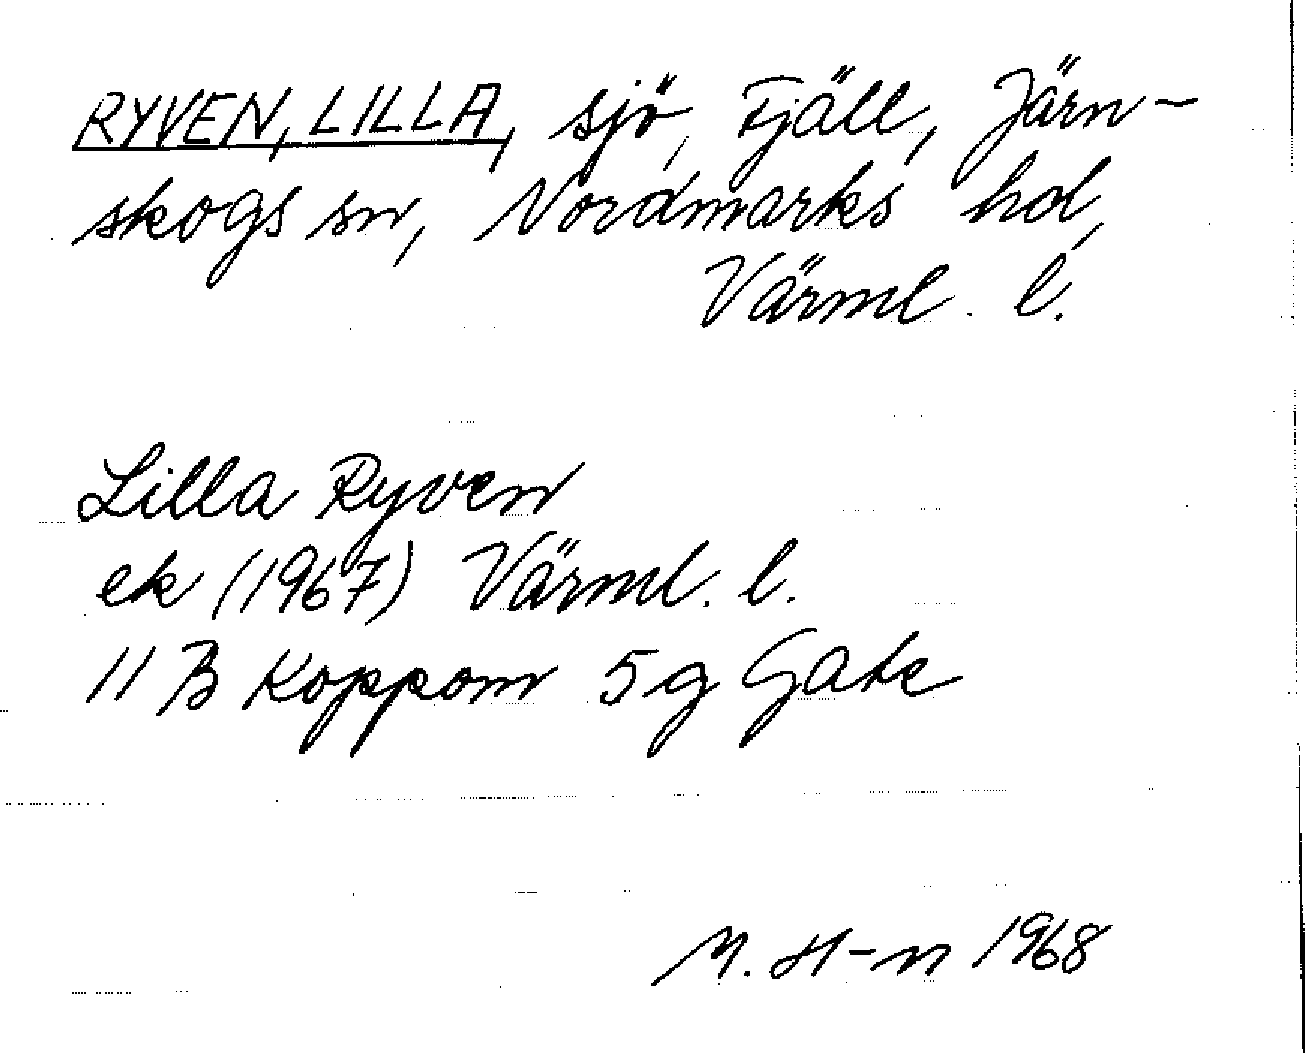 RYVEN, LILLA, sjö, Fjäll, Järn-
skogs sn, Nordmarks hd,
Värml. l.
Lilla Ryven
ek (1967) Värml. l.
11 B Koppom 5g Gate
M. H-n 1968